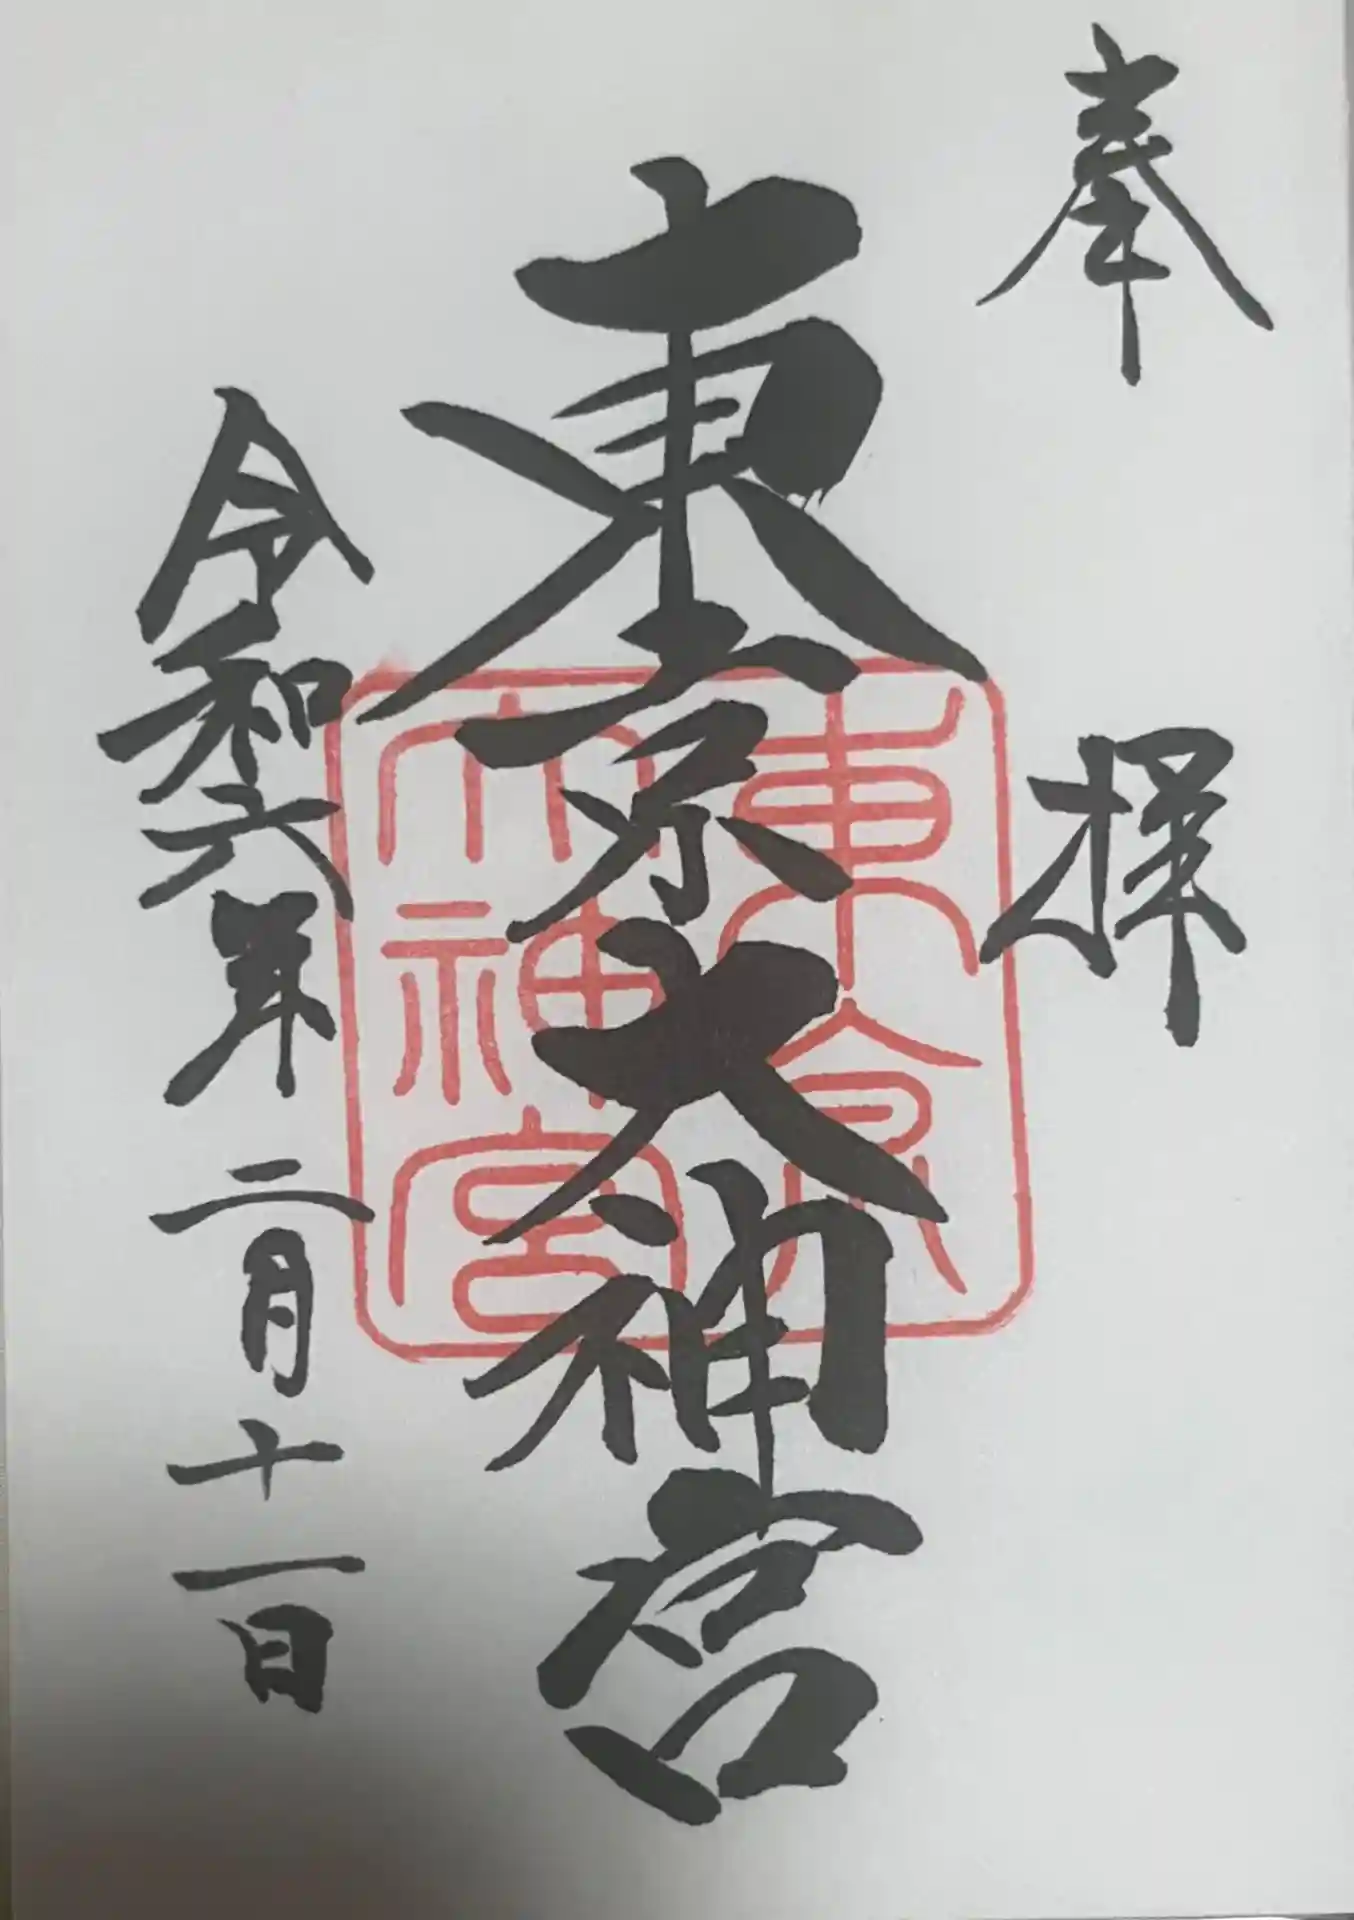 奉拝
東京大神宮
令和六年二月十一日
東京
大神宮